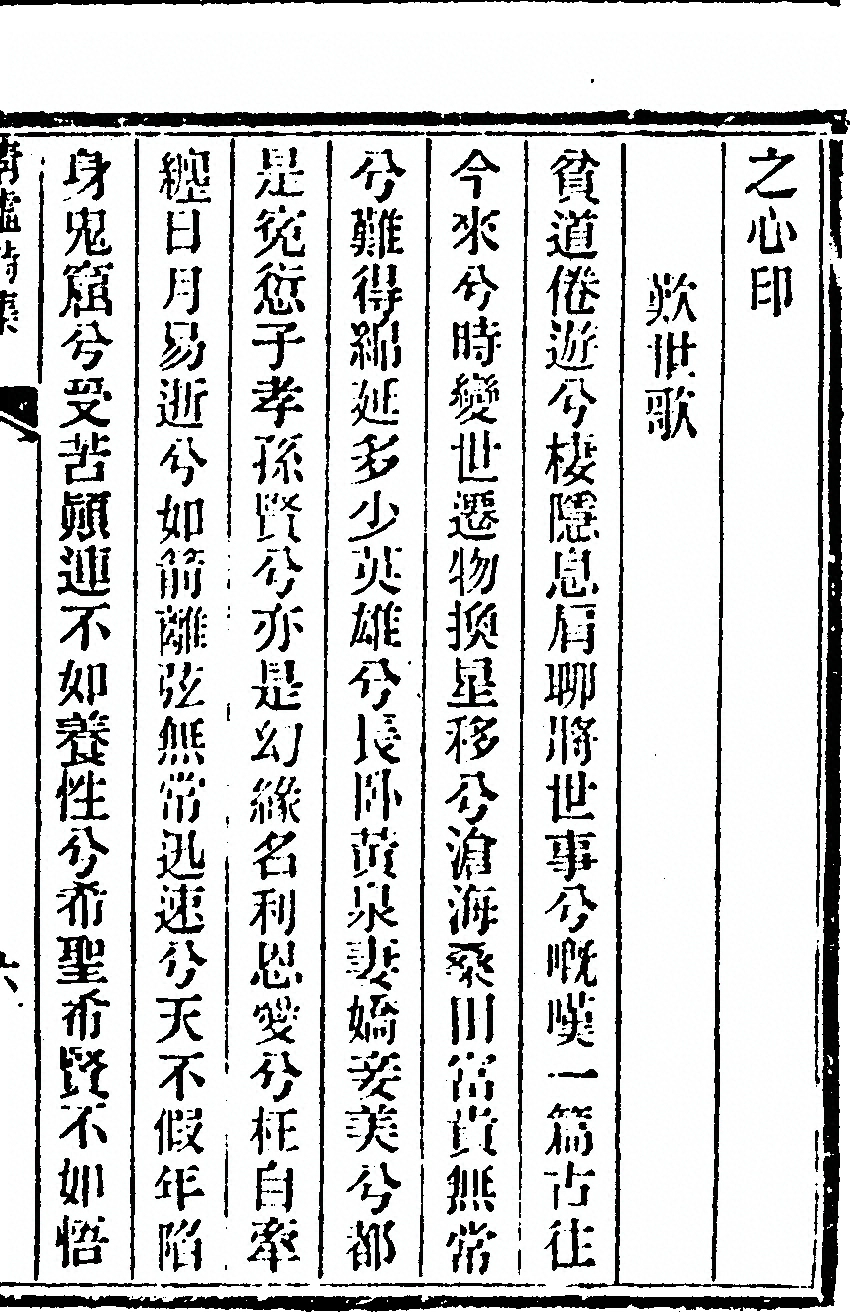 之心印
歎世歌
貧道倦遊兮棲隱息肩聊將世事兮嘅嘆一篇古往
今來兮時變世遷物換星移兮滄海桑田富貴無常
兮難得綿延多少英雄兮長臥黄泉妻嬌妾美兮都
是寃愆子孝孫賢兮亦是幻緣名利恩愛兮枉自牽
纏日月易逝兮如箭離弦無常迅速兮天不假年陷
身鬼窟兮受苦顛連不如養性兮希聖希賢不如悟
詩集
六